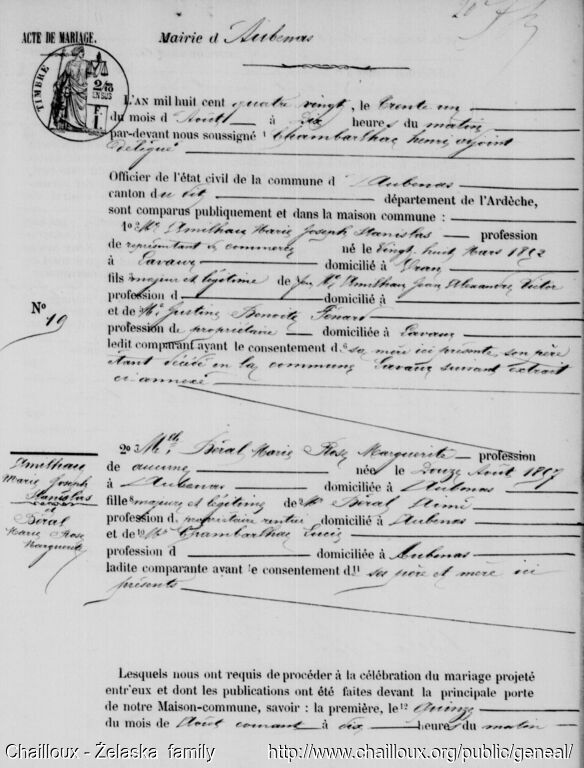 ACTE DE MARIAGE.
Mairie d'Aubenas
TIMBRE
2/10
EN SUS
L'AN mil huit cent quatre vingt, le trente un
du mois d'Août à dix heures du matin
par-devant nous soussigné Chambarlhac henri adjoint
délégué
Officier de l'état civil de la commune d'Aubenas
canton du dit département de l'Ardèche,
sont comparus publiquement et dans la maison commune :
1º Mr Amilhau Marie Joseph Stanislas profession
de représentant de commerce né le vingt huit Mars 1852
à Lavaur domicilié à Oran
fils majeur et légitime de feu Mr Amilhau Jean Alexandre Victor
profession d domicilié à
et de Me Justine Benoite Fénard
profession de propriétaire domiciliée à Lavaur
ledit comparant ayant le consentement de sa mère ici présente, son père
étant décédé en la commune Lavaur suivant extrait
ci annexé
Nº
19
2º Mlle Béral Marie Rose Marguerite profession
de aucune née le douze Août 1857
à Aubenas domiciliée à Aubenas
fille majeure et légitime de Mr Béral Aimé
profession de propriétaire rentier domicilié à Aubenas
et de Me Chambarlhac Lucie
profession d domiciliée à Aubenas
ladite comparante ayant le consentement d ses père et mère ici
présents
Amilhau
Marie Joseph
Stanislas
Béral
Marie Rose
Marguerite
Lesquels nous ont requis de procéder à la célébration du mariage projeté
entr'eux et dont les publications ont été faites devant la principale porte
de notre Maison-commune, savoir : la première, le quinze
du mois de Août courant à dix heures du matin
Chailloux - Żelaska family http://www.chailloux.org/public/geneal/